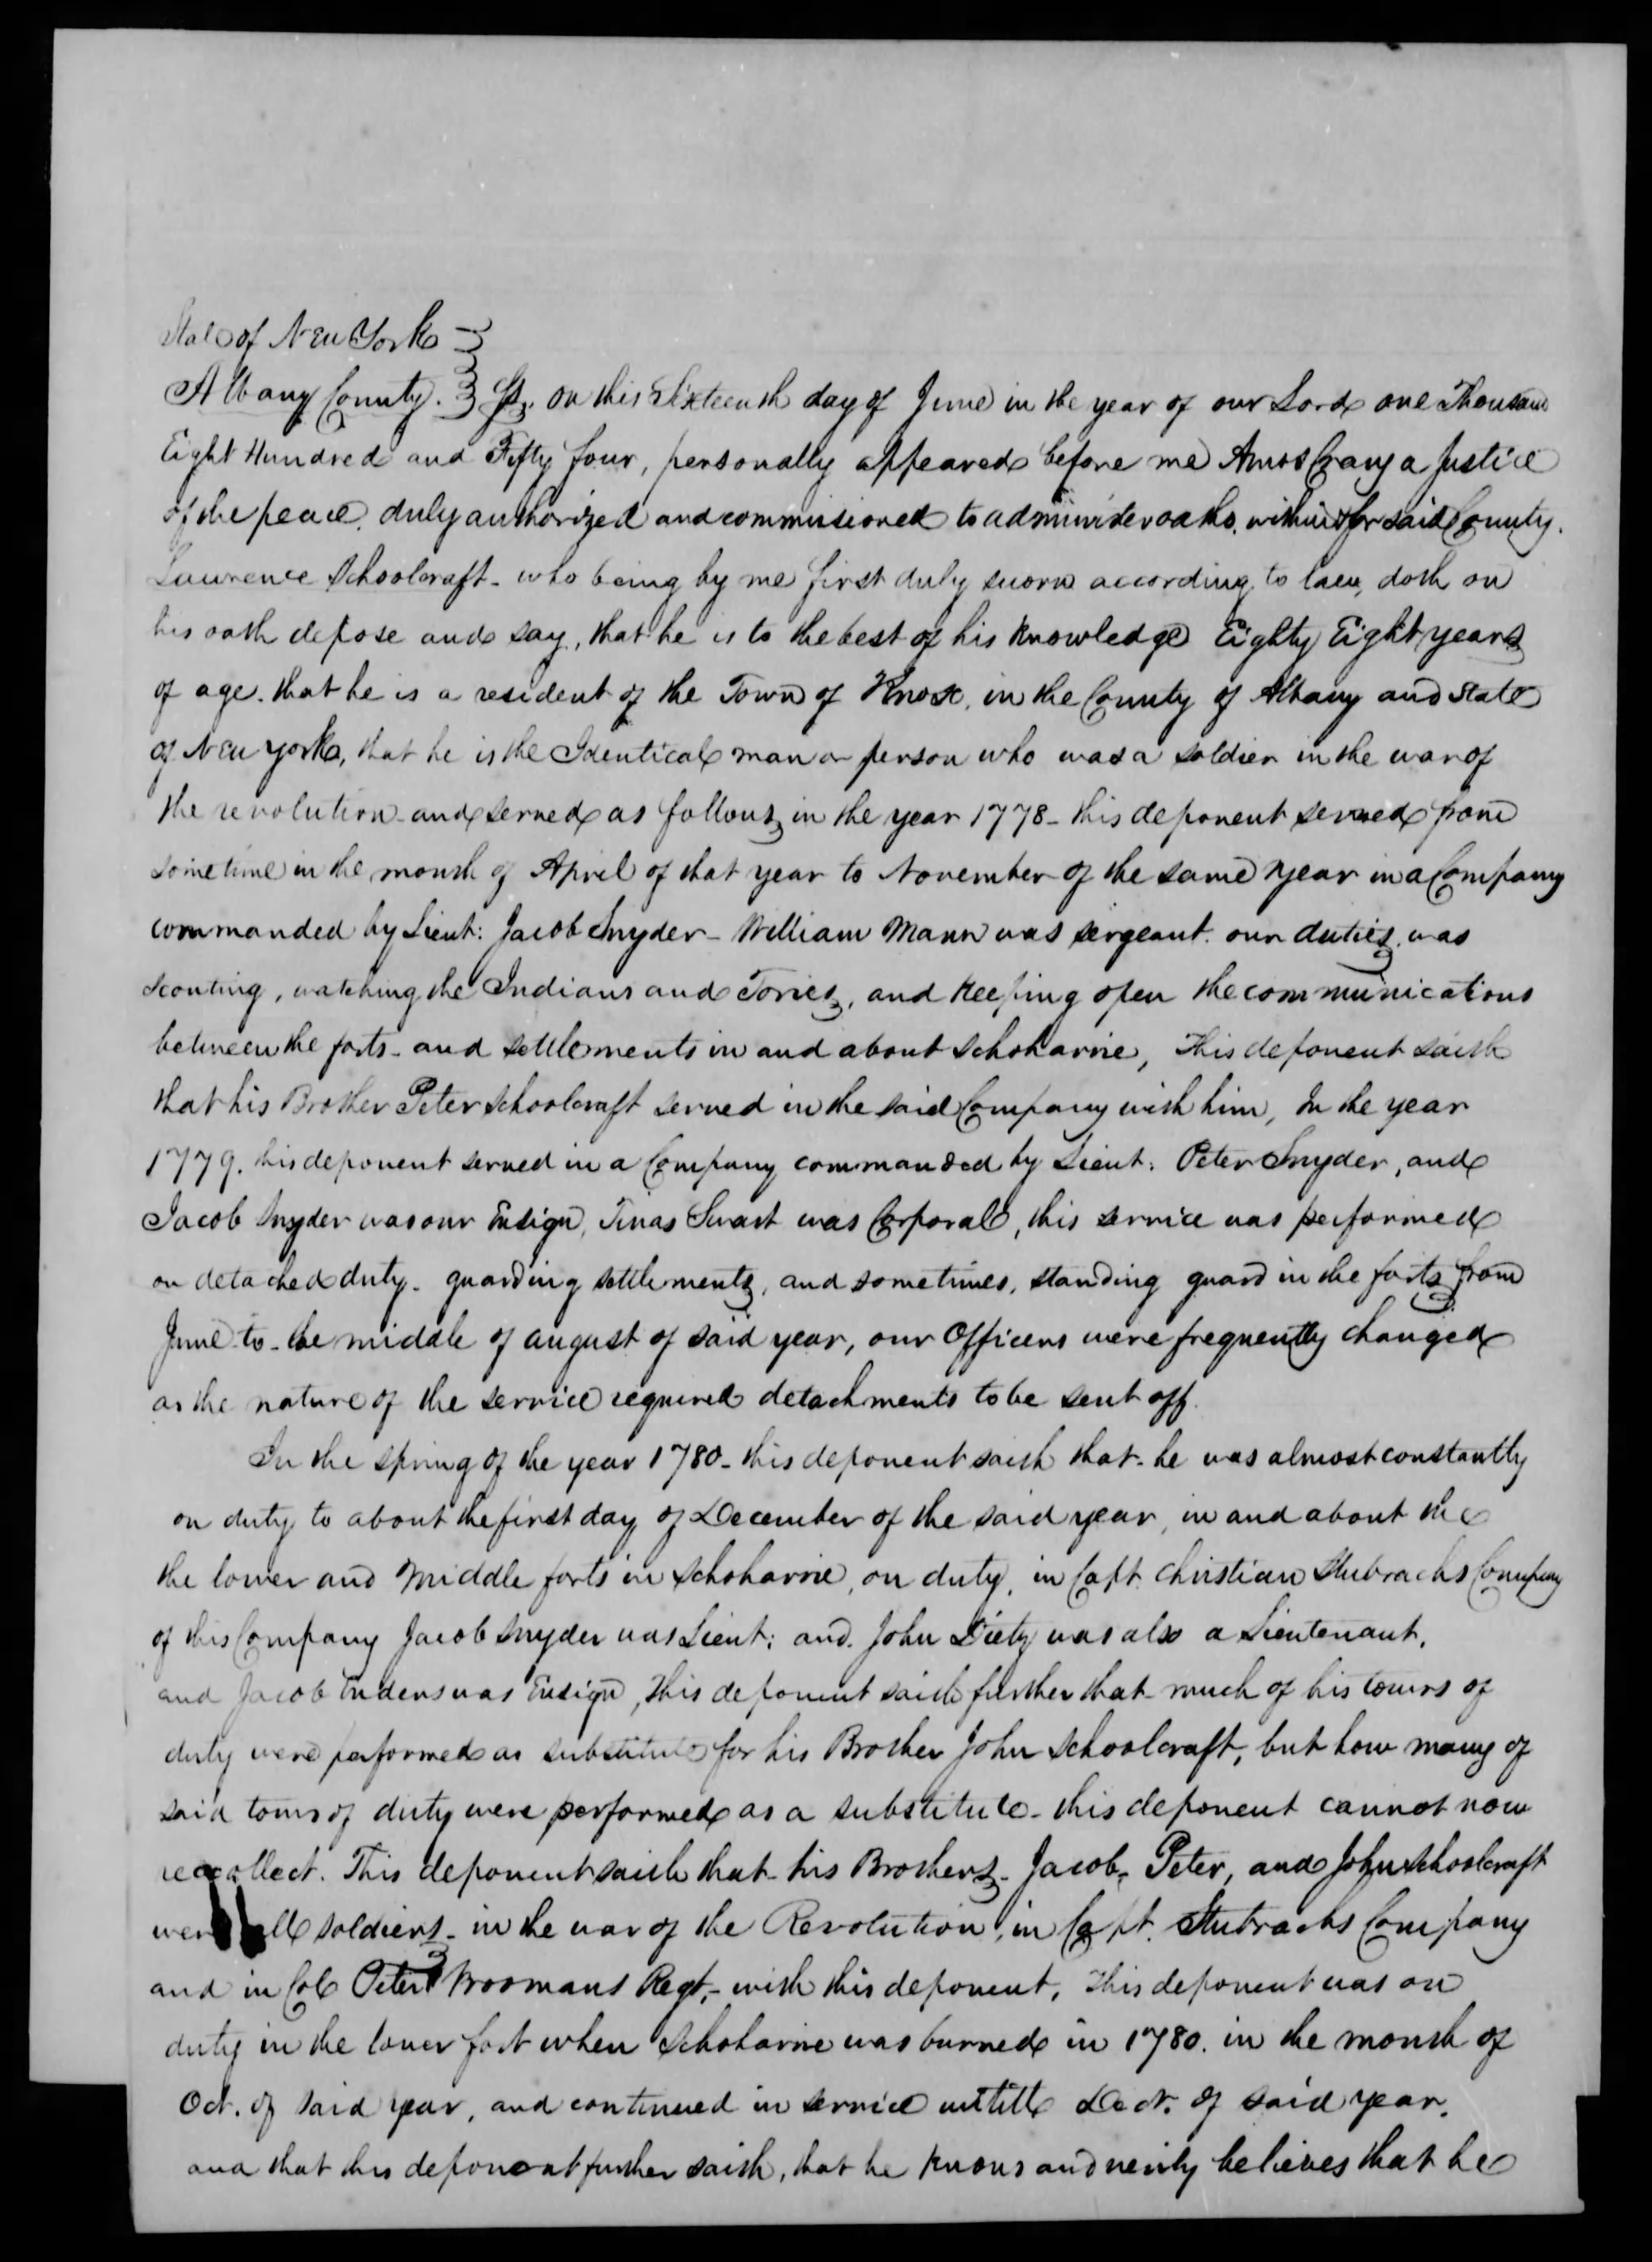 State of New York
Albany County. Ss. on this Sixteenth day of June in the year of our Lord one Thousand
Eight Hundred and Fifty four, personally appeared before me Amos Crary a Justice
of the peace, duly authorized and commissioned to administer oaths, within & for said County.
Lawrence Schoolcraft - who being by me first duly sworn according to law, doth on
his oath depose and say, that he is to the best of his knowledge Eighty Eight years
of age. that he is a resident of the Town of Knox, in the County of Albany and State
of New York, that he is the Identical man or person who was a soldier in the war of
the revolution and served as follows, in the year 1778 - this deponent served from
sometime in the month of April of that year to November of the same year in a Company
commanded by Lieut: Jacob Snyder - William Mann was sergeant. our duties was
scouting, watching the Indians and Tories, and keeping open the communications
between the forts - and settlements in and about Schoharrie, This deponent saith
that his Brother Peter Schoolcraft served in the said Company with him, In the year
1779. this deponent served in a Company commanded by Lieut: Peter Snyder, and
Jacob Snyder was our Ensign, Tinas Swart was Corporal, this service was performed
on detached duty - guarding settlements, and sometimes, standing guard in the forts from
June to - the middle of august of said year, our Officers were frequently changed
as the nature of the service required detachments to be sent off.
In the spring of the year 1780 - this deponent saith that - he was almost constantly
on duty to about the first day of December of the said year, in and about the
the lower and middle forts in Schoharrie, on duty, in Capt. Christian Stubrachs Company
of this Company Jacob Snyder was Lieut: and. John Dietz was also a Lieutenant.
and Jacob Enders was Ensign, This deponent saith further that - much of his tours of
duty were performed as substitute for his Brother John Schoolcraft, but how many of
said tours of duty were performed as a substitute - this deponent cannot now
recollect. This deponent saith that - his Brothers - Jacob, Peter, and John Schoolcraft
were all soldiers - in the war of the Revolution, in Capt. Stubrachs Company
and in Col Peter Vroomans Regt, - with this deponent. This deponent was on
duty in the lower fort when Schoharrie was burned in 1780. in the month of
Oct. of said year, and continued in service untill Dec. of said year.
and that this deponent further saith, that he knows and verily believes that he